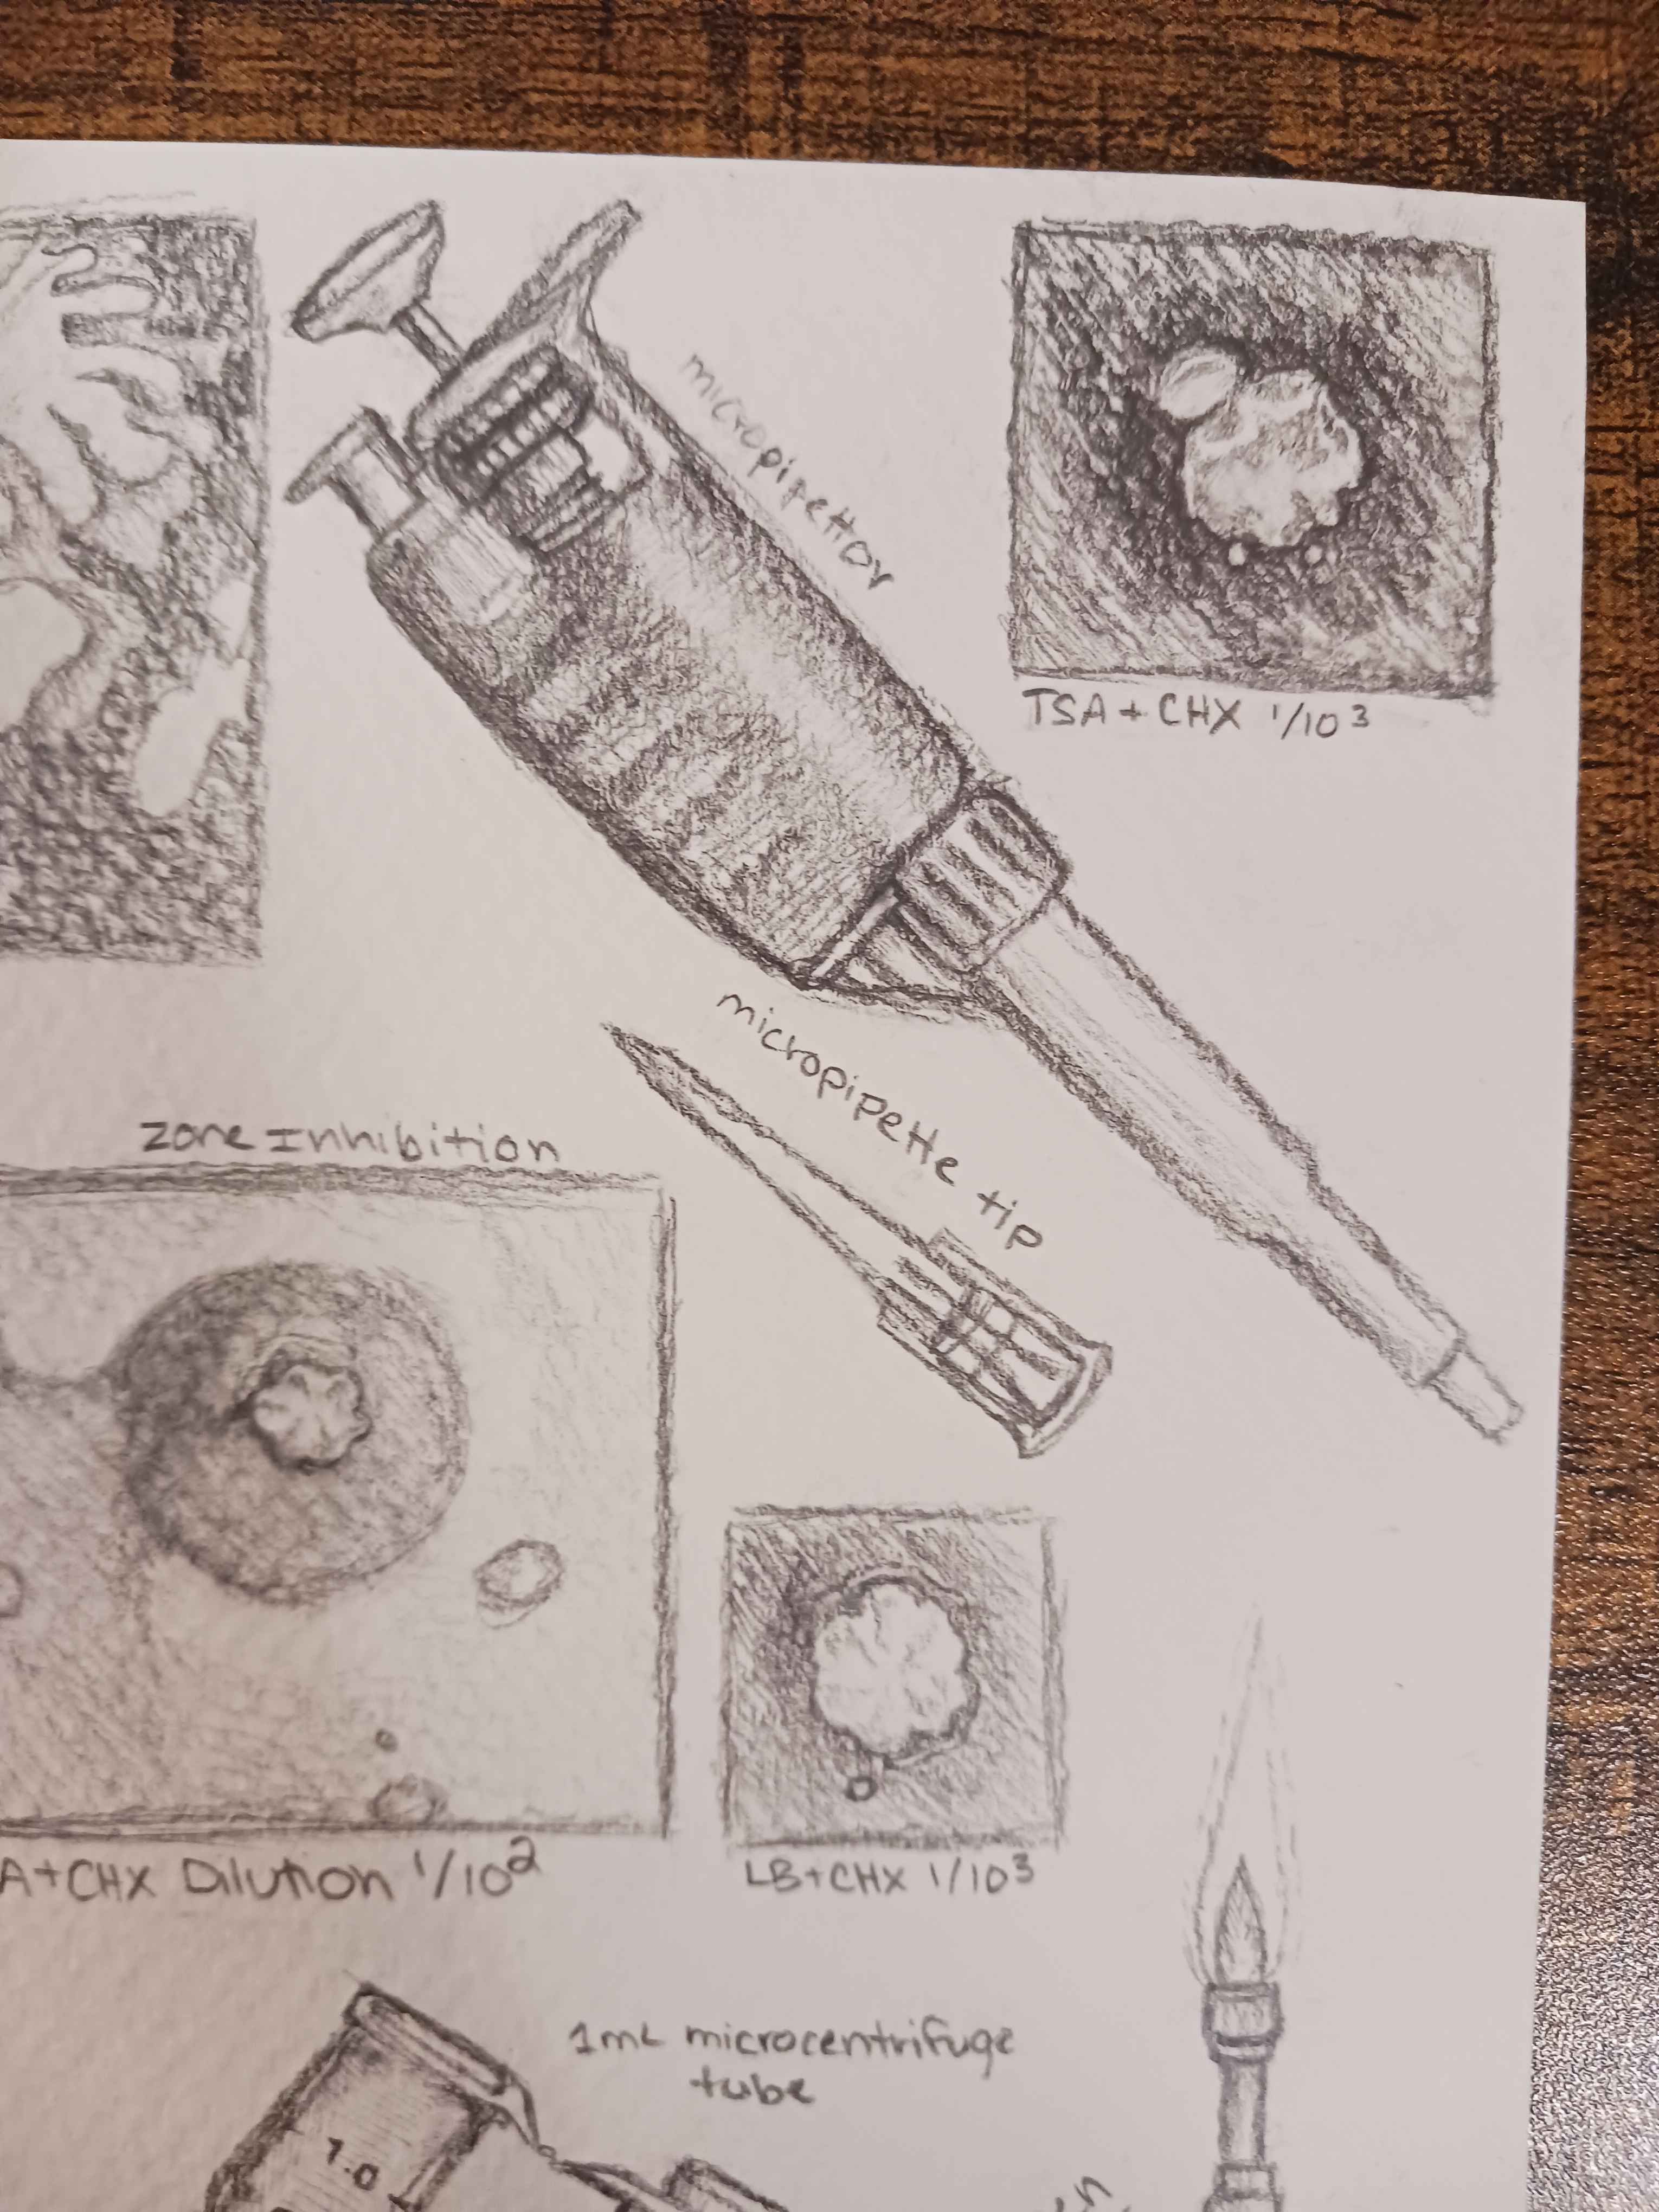 micropipettor
TSA + CHX 1/10³
micropipette tip
zone Inhibition
A+CHX Dilution 1/10²
LB+CHX 1/10³
1mL microcentrifuge
tube
1.0